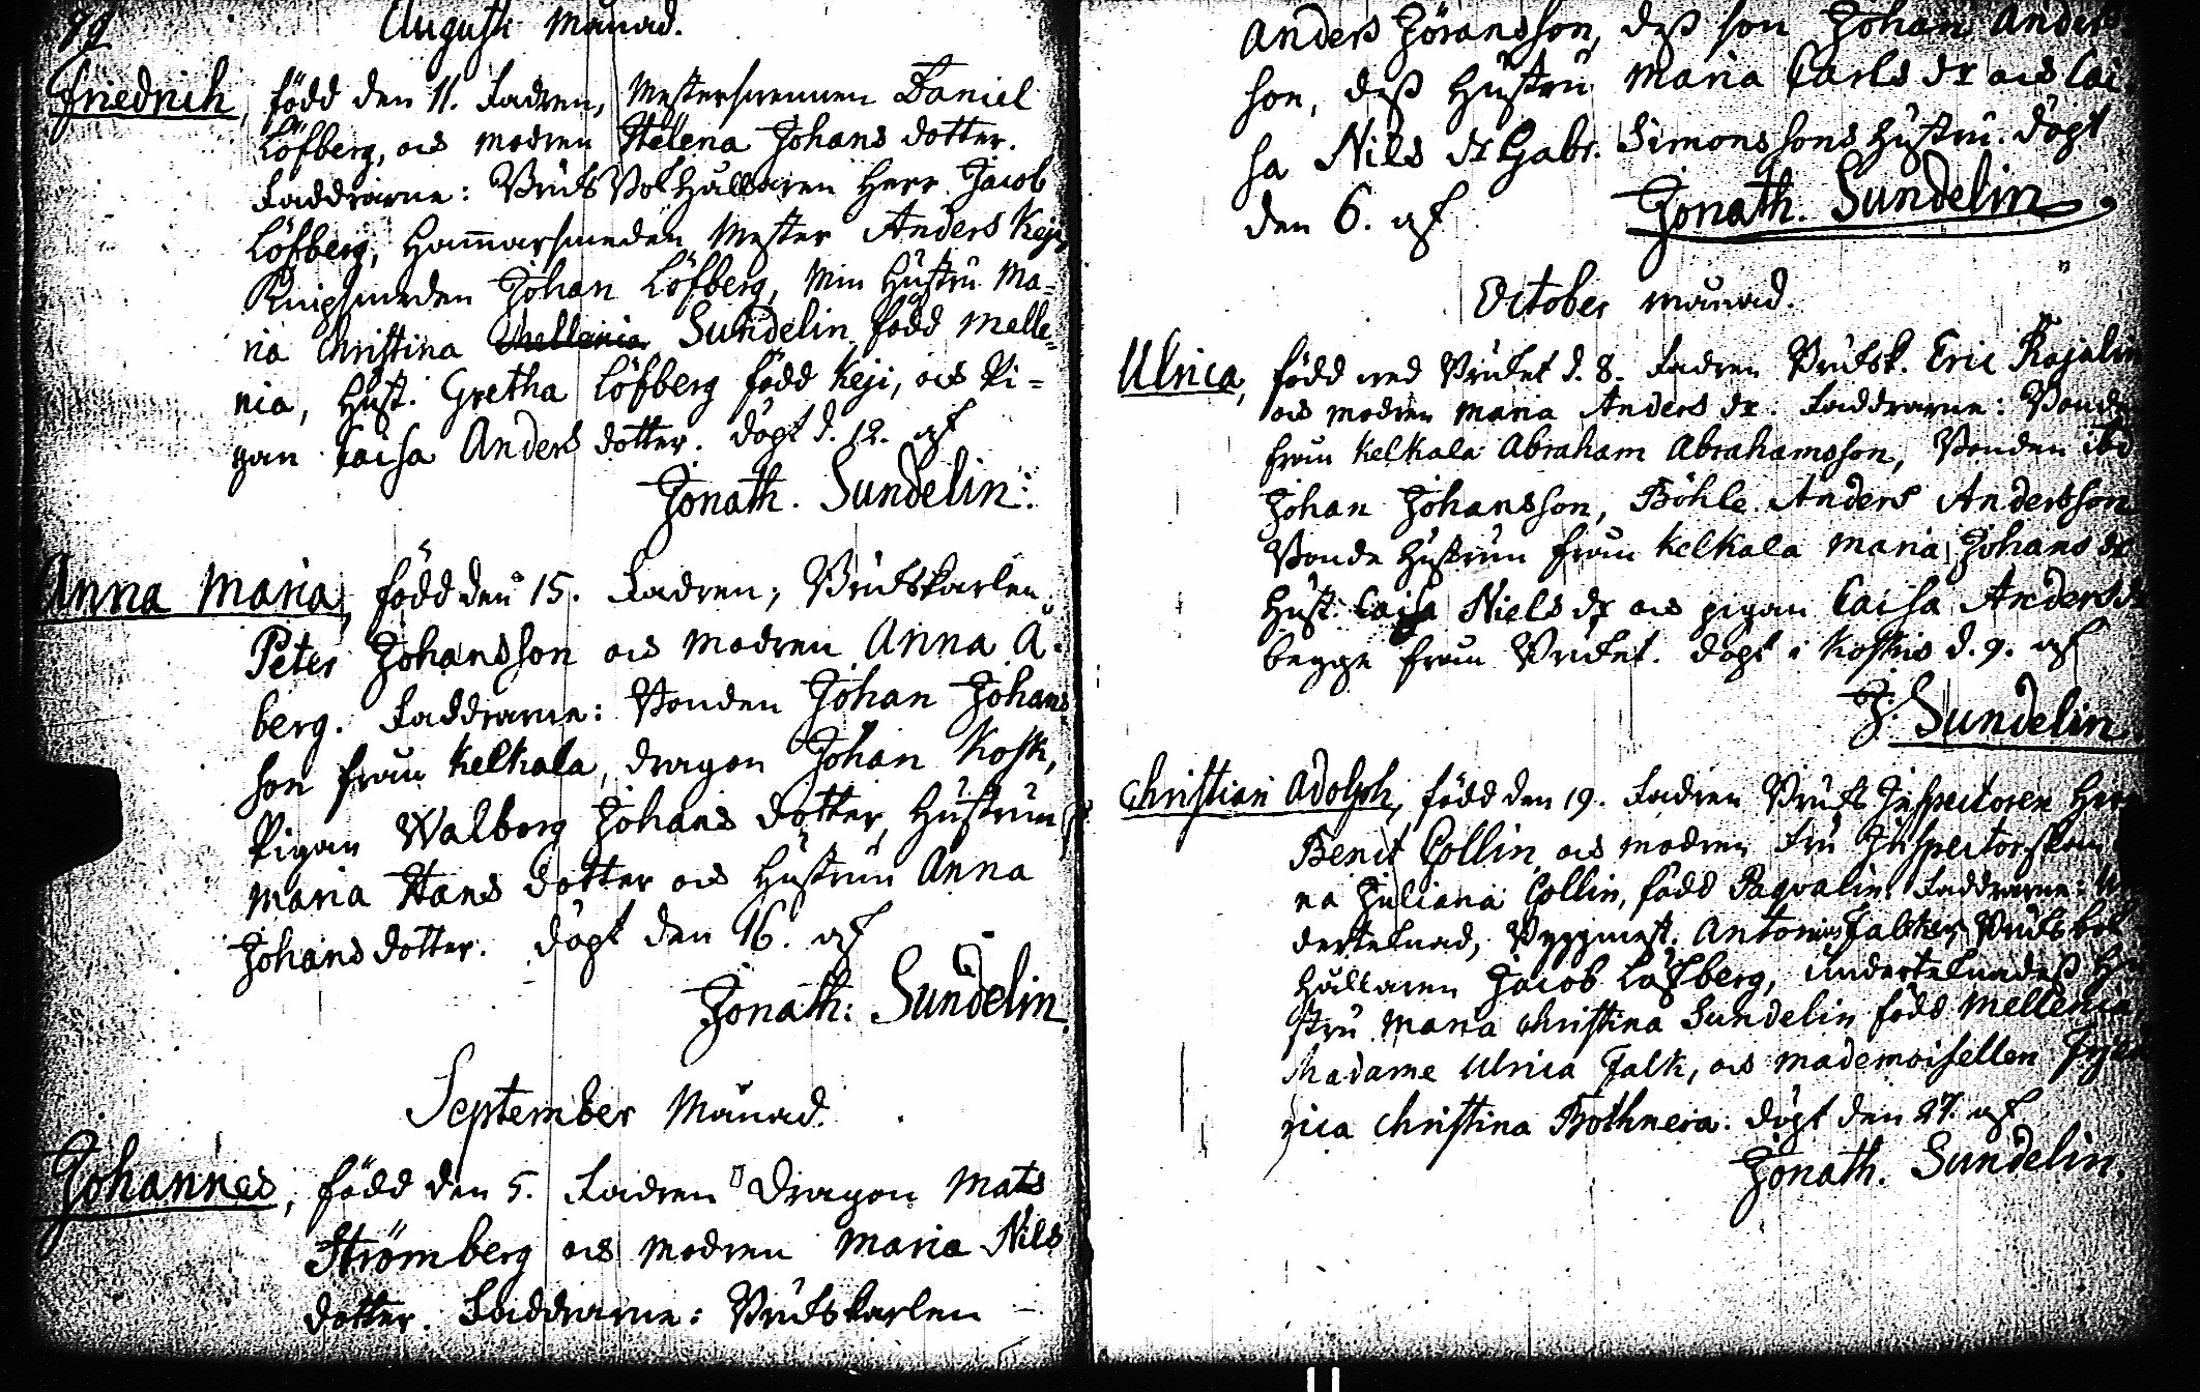 Augusti Månad.
Friedrich, född den 11. Fadren, Mestersvennen Daniel
Löfberg, och modren Helena Johans dotter.
Faddrarne: Bruks Bokhållaren Herr Jacob
Löfberg, Ham̄arsmeden Mester Anders Keji,
Knipsmeden Johan Löfberg, Min Hustru Ma=
ria Christina Sundelin född Melle=
nia, Hust. Gretha Löfberg född Keji, och Pi=
gan Caisa Anders dotter. döpt d. 12. af
Jonath. Sundelin.
Anna Maria, född den 15. Fadren, Brukskarlen
Peter Johansson och modren Anna Å-
berg. Faddrarne: Bonden Johan Johans
son från Kelkala, dragon Johan Kosk,
Pigan Walborg Johans dotter, Hustrun
Maria Hans dotter och Hustrun Anna
Johans dotter. döpt den 16. af
Jonath: Sundelin.
September Månad.
Johannes, född den 5. Fadren Dragon Mats
Strömberg och modren Maria Nils
dotter. Faddrarne: Brukskarlen
Anders Jöransson, deß son Johan Anders
son, deß Hustru Maria Carls dr och Cai
sa Nils dr Gabr. Simonssons Hustru. döpt
den 6. af Jonath. Sundelin
October månad.
Ulrica, född wed Bruket d. 8. Fadren Bruksk. Eric Rajalin
och modren Maria Anders dr. Faddrarne: Bonden
från Kelkala Abraham Abrahamsson, Bonden ibd
Johan Johansson, Böhle Anders Andersson
Bonde Hustrun från Kelkala Maria Johans dr
Hust. Caisa Niels dr och pigan Caisa Anders dr
begge från Bruket. döpt i Koskis d. 9. af
J. Sundelin
Christian Adolph, född den 19. Fadren Bruks Inspectoren Herr
Benct Collin och modren Fru Inspectorskan
na Juliana Collin, född Paqvalin. Faddrarne: Un
dertecknad, Byggmest. Antonius Falker, Bruks bok
hållaren Jacob Löfberg, undertecknades Hu
stru Maria Christina Sundelin född Mellenia,
Madame Ulrica Falk, och Mademoisellen
rica Christina Bothneia. döpt den 27. af
Jonath. Sundelin.